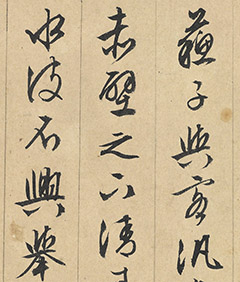 蘇子與客汎
赤壁之下清
水波不興舉